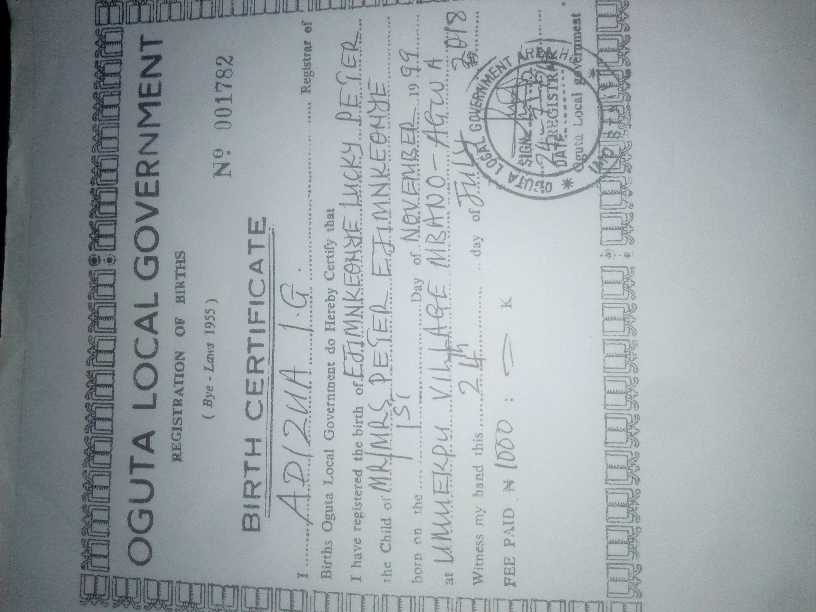 OGUTA LOCAL GOVERNMENT
REGISTRATION OF BIRTHS
(Bye-Laws 1955)
Nº 001782
BIRTH CERTIFICATE
I ADIZUA I.G. Registrar of
Births Oguta Local Government do Hereby Certify that
I have registered the birth of EJIMNKEONYE LUCKY PETER
the Child of MR/MRS PETER EJIMNKEONYE
born on the 1ST Day of NOVEMBER 1999
at UMUEKPU VILLAGE MBANO-AGWA
Witness my hand this 24th day of July 2018
FEE PAID ₦ 1000 : = K
REGISTRAR
Oguta Local government
OGUTA LOCAL GOVERNMENT AREA
SIGN
DATE